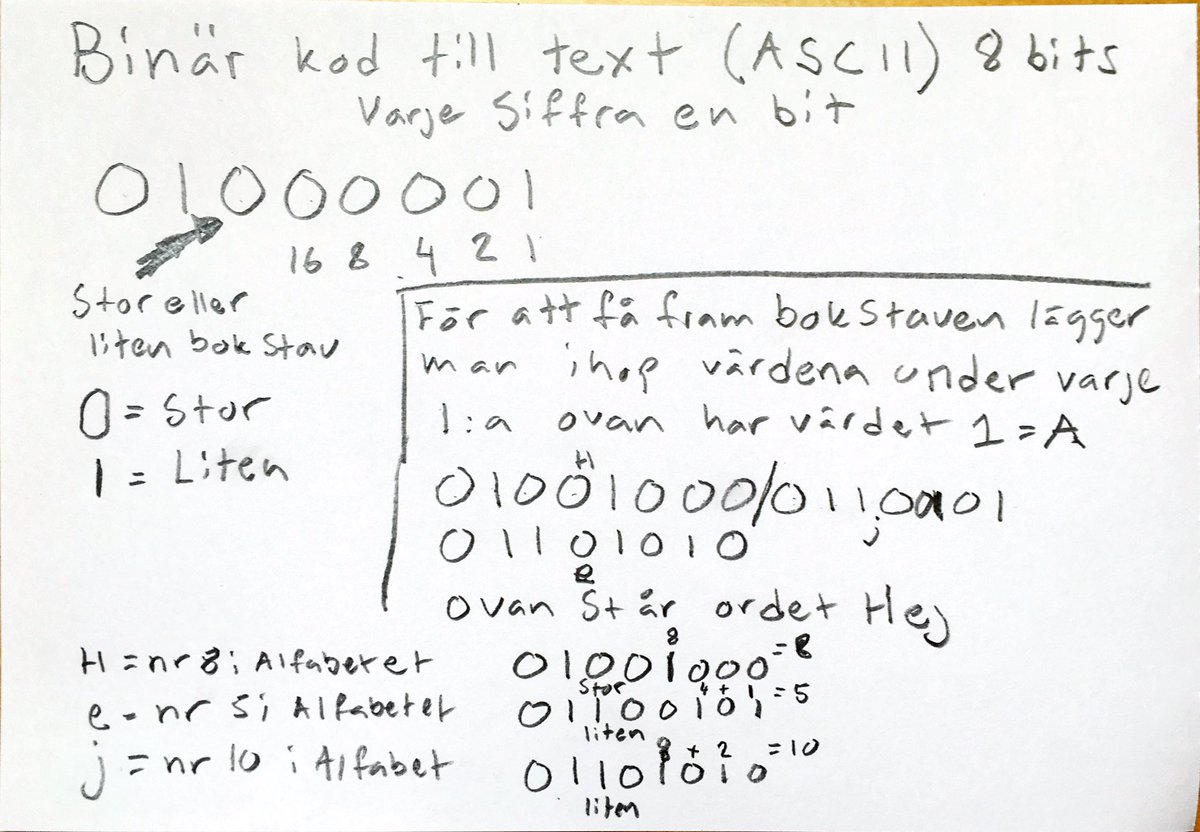 Binär kod till text (ASCII) 8 bits
Varje Siffra en bit
01000001
16 8 4 2 1
Stor eller
liten bokstav
0 = Stor
1 = Liten
För att få fram bokstaven lägger
man ihop värdena under varje
1:a ovan har värdet 1 = A
H
01001000/01100101
j
01101010
e
ovan Står ordet Hej
H = nr 8 i Alfabetet
e = nr 5 i Alfabetet
j = nr 10 i Alfabet
8
01001000 = 8
Stor 4 + 1
01100101 = 5
liten 8 + 2
01101010 = 10
liten